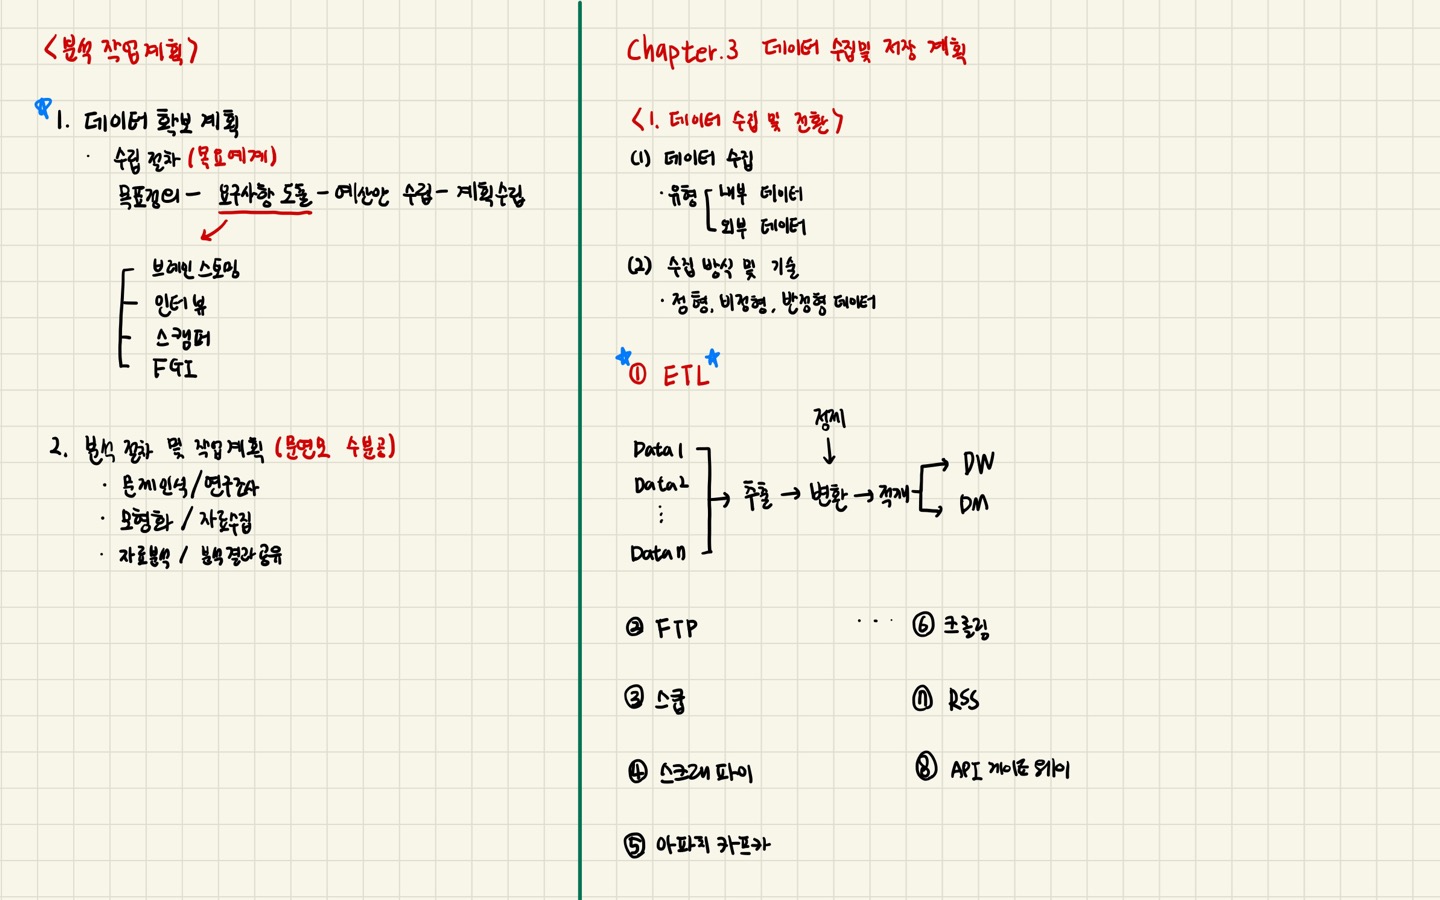 <분석 작업 계획>
1. 데이터 확보 계획
· 수립 절차 (목요예계)
목표정의 - 요구사항 도출 - 예산안 수립 - 계획수립
브레인스토밍
인터뷰
스캠퍼
FGI
2. 분석 절차 및 작업계획 (문연모 수분공)
· 문제인식/연구조사
· 모형화 / 자료수집
· 자료분석 / 분석결과공유
Chapter.3 데이터 수집및 저장 계획
<1. 데이터 수집 및 전환>
(1) 데이터 수집
· 유형 내부 데이터
외부 데이터
(2) 수집 방식 및 기술
· 정형, 비정형, 반정형 데이터
① ETL
정제
↓
Data1
Data2
⋮
Data n
→ 추출 → 변환 → 적재 → DW
→ DM
② FTP ··· ⑥ 크롤링
③ 스쿱 ⑦ RSS
④ 스크래파이 ⑧ API 게이트웨이
⑤ 아파치 카프카